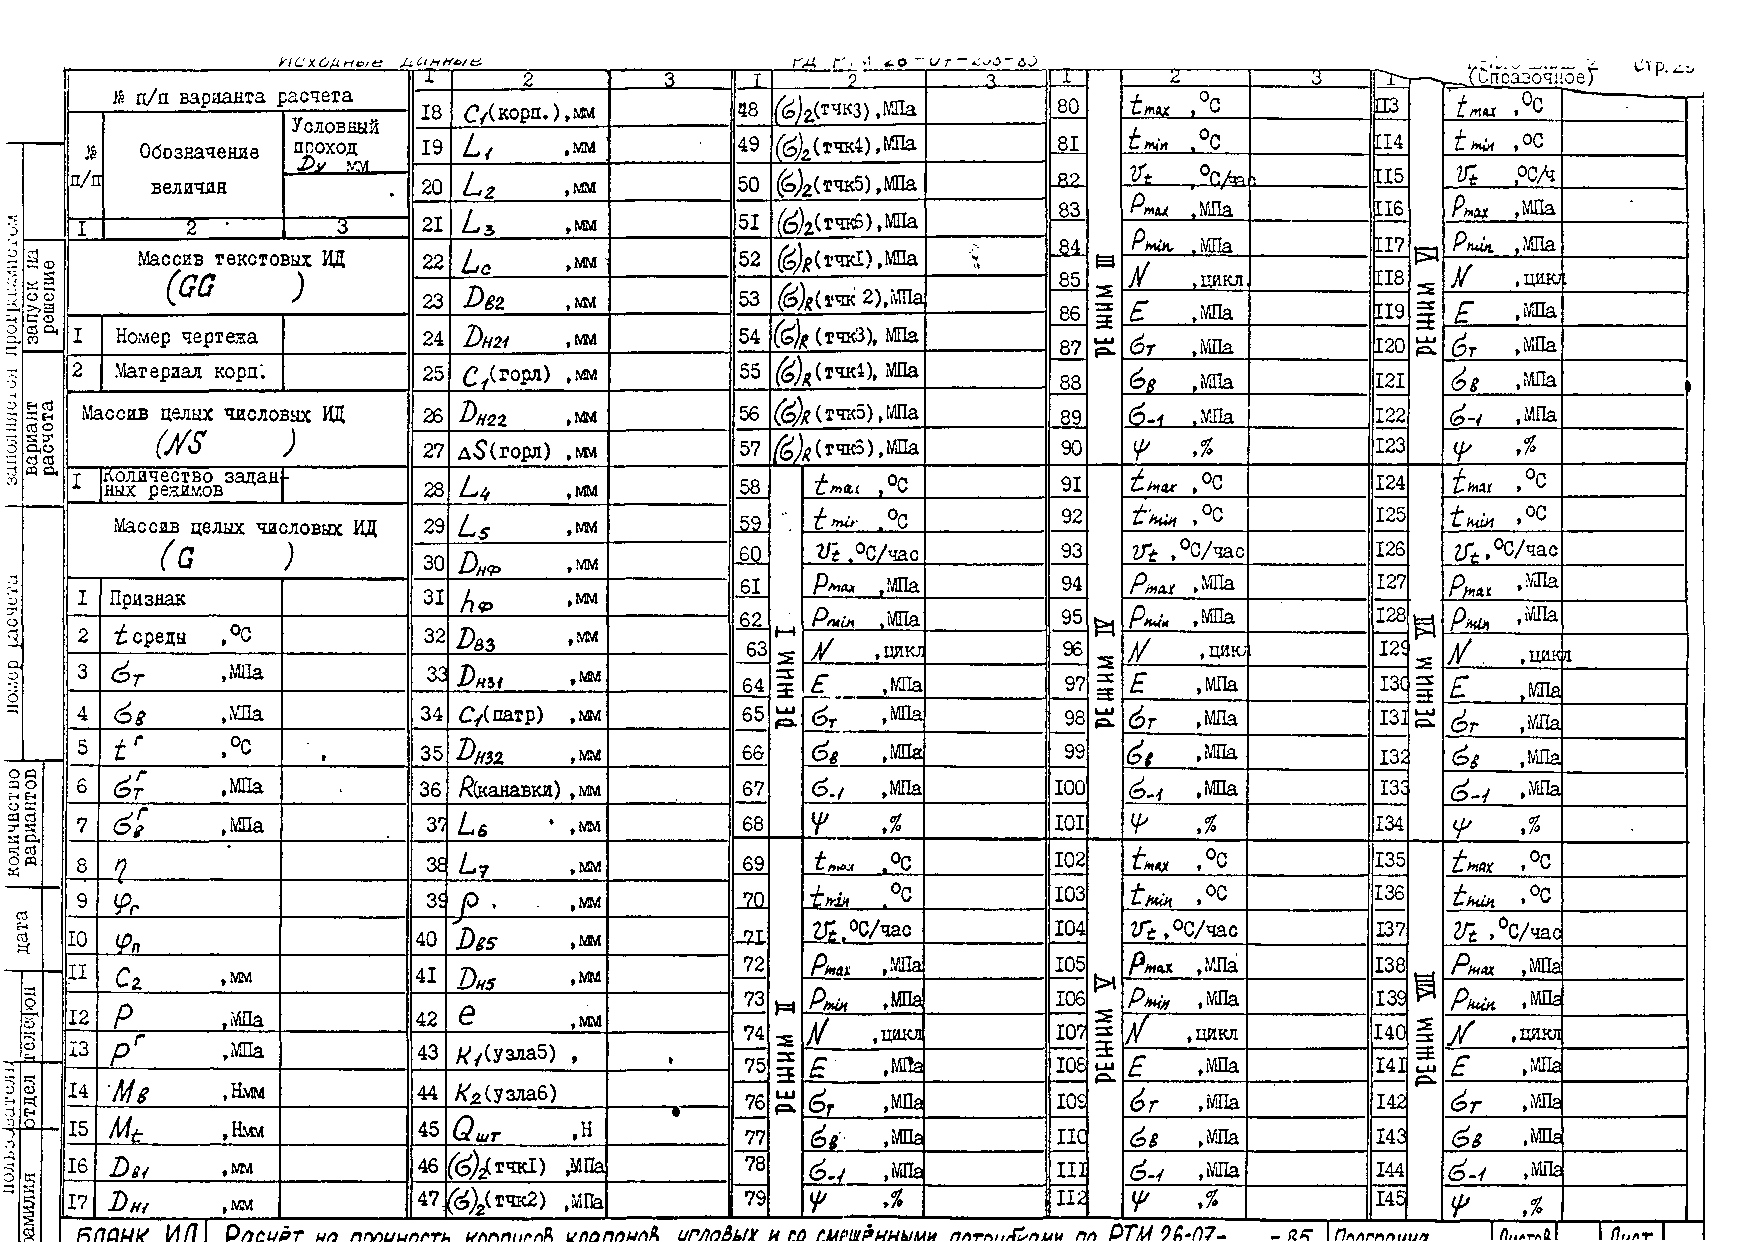 Исходные данные
(Справочное)
Стр.
№ п/п варианта расчета
№ п/п
Обозначение величин
Условный проход Dу мм
I 2 3
Массив текстовых ИД
(GG )
I Номер чертежа
2 Материал корп.
Массив целых числовых ИД
(NS )
I Количество задан-
ных режимов
Массив целых числовых ИД
(G )
I Признак
2 t среды ,°C
3 σт ,МПа
4 σв ,МПа
5 tг ,°C
6 σтг ,МПа
7 σвг ,МПа
8 η
9 φг
10 φп
II C2 ,мм
I2 P ,МПа
I3 Pг ,МПа
I4 Mв ,Нмм
I5 Mt ,Нмм
I6 Dв1 ,мм
I7 Dн1 ,мм
I 2 3
I8 C1(корп.),мм
I9 L1 ,мм
20 L2 ,мм
2I L3 ,мм
22 Lc ,мм
23 Dв2 ,мм
24 Dн21 ,мм
25 C1(горл) ,мм
26 Dн22 ,мм
27 ΔS(горл) ,мм
28 L4 ,мм
29 L5 ,мм
30 Dнф ,мм
3I hф ,мм
32 Dв3 ,мм
33 Dн31 ,мм
34 C1(патр) ,мм
35 Dн32 ,мм
36 R(канавки) ,мм
37 L6 ,мм
38 L7 ,мм
39 ρ ,мм
40 Dв5 ,мм
4I Dн5 ,мм
42 e ,мм
43 K1(узла5) ,
44 K2(узла6)
45 Qшт ,Н
46 (σ)2(тчкI) ,МПа
47 (σ)2(тчк2) ,МПа
I 2 3
48 (σ)2(тчк3),МПа
49 (σ)2(тчк4),МПа
50 (σ)2(тчк5),МПа
5I (σ)2(тчк6),МПа
52 (σ)R(тчкI),МПа
53 (σ)R(тчк 2),МПа
54 (σ)R(тчк3), МПа
55 (σ)R(тчк4), МПа
56 (σ)R(тчк5),МПа
57 (σ)R(тчк6),МПа
РЕЖИМ I
58 tmax ,°C
59 tmin ,°C
60 Vt ,°C/час
6I Pmax ,МПа
62 Pmin ,МПа
63 N ,цикл
64 E ,МПа
65 σт ,МПа
66 σв ,МПа
67 σ-1 ,МПа
68 ψ ,%
РЕЖИМ II
69 tmax ,°C
70 tmin ,°C
7I Vt ,°C/час
72 Pmax ,МПа
73 Pmin ,МПа
74 N ,цикл
75 E ,МПа
76 σт ,МПа
77 σв ,МПа
78 σ-1 ,МПа
79 ψ ,%
I 2 3
РЕЖИМ III
80 tmax ,°C
8I tmin ,°C
82 Vt ,°C/час
83 Pmax ,МПа
84 Pmin ,МПа
85 N ,цикл
86 E ,МПа
87 σт ,МПа
88 σв ,МПа
89 σ-1 ,МПа
90 ψ ,%
РЕЖИМ IV
9I tmax ,°C
92 tmin ,°C
93 Vt ,°C/час
94 Pmax ,МПа
95 Pmin ,МПа
96 N ,цикл
97 E ,МПа
98 σт ,МПа
99 σв ,МПа
I00 σ-1 ,МПа
I0I ψ ,%
РЕЖИМ V
I02 tmax ,°C
I03 tmin ,°C
I04 Vt ,°C/час
I05 Pmax ,МПа
I06 Pmin ,МПа
I07 N ,цикл
I08 E ,МПа
I09 σт ,МПа
II0 σв ,МПа
III σ-1 ,МПа
II2 ψ ,%
I
РЕЖИМ VI
II3 tmax ,°C
II4 tmin ,°C
II5 Vt ,°C/ч
II6 Pmax ,МПа
II7 Pmin ,МПа
II8 N ,цикл
II9 E ,МПа
I20 σт ,МПа
I2I σв ,МПа
I22 σ-1 ,МПа
I23 ψ ,%
РЕЖИМ VII
I24 tmax ,°C
I25 tmin ,°C
I26 Vt ,°C/час
I27 Pmax ,МПа
I28 Pmin ,МПа
I29 N ,цикл
I30 E ,МПа
I3I σт ,МПа
I32 σв ,МПа
I33 σ-1 ,МПа
I34 ψ ,%
РЕЖИМ VIII
I35 tmax ,°C
I36 tmin ,°C
I37 Vt ,°C/час
I38 Pmax ,МПа
I39 Pmin ,МПа
I40 N ,цикл
I4I E ,МПа
I42 σт ,МПа
I43 σв ,МПа
I44 σ-1 ,МПа
I45 ψ ,%
заполняется программистом
запуск на решение
вариант расчота
номер расчета
количество вариантов
дата
телефон
отдел
БЛАНК ИД Расчёт на прочность корпусов клапанов угловых и со смещёнными патрубками по РТМ 26-07- -85 Программа Листов Лист